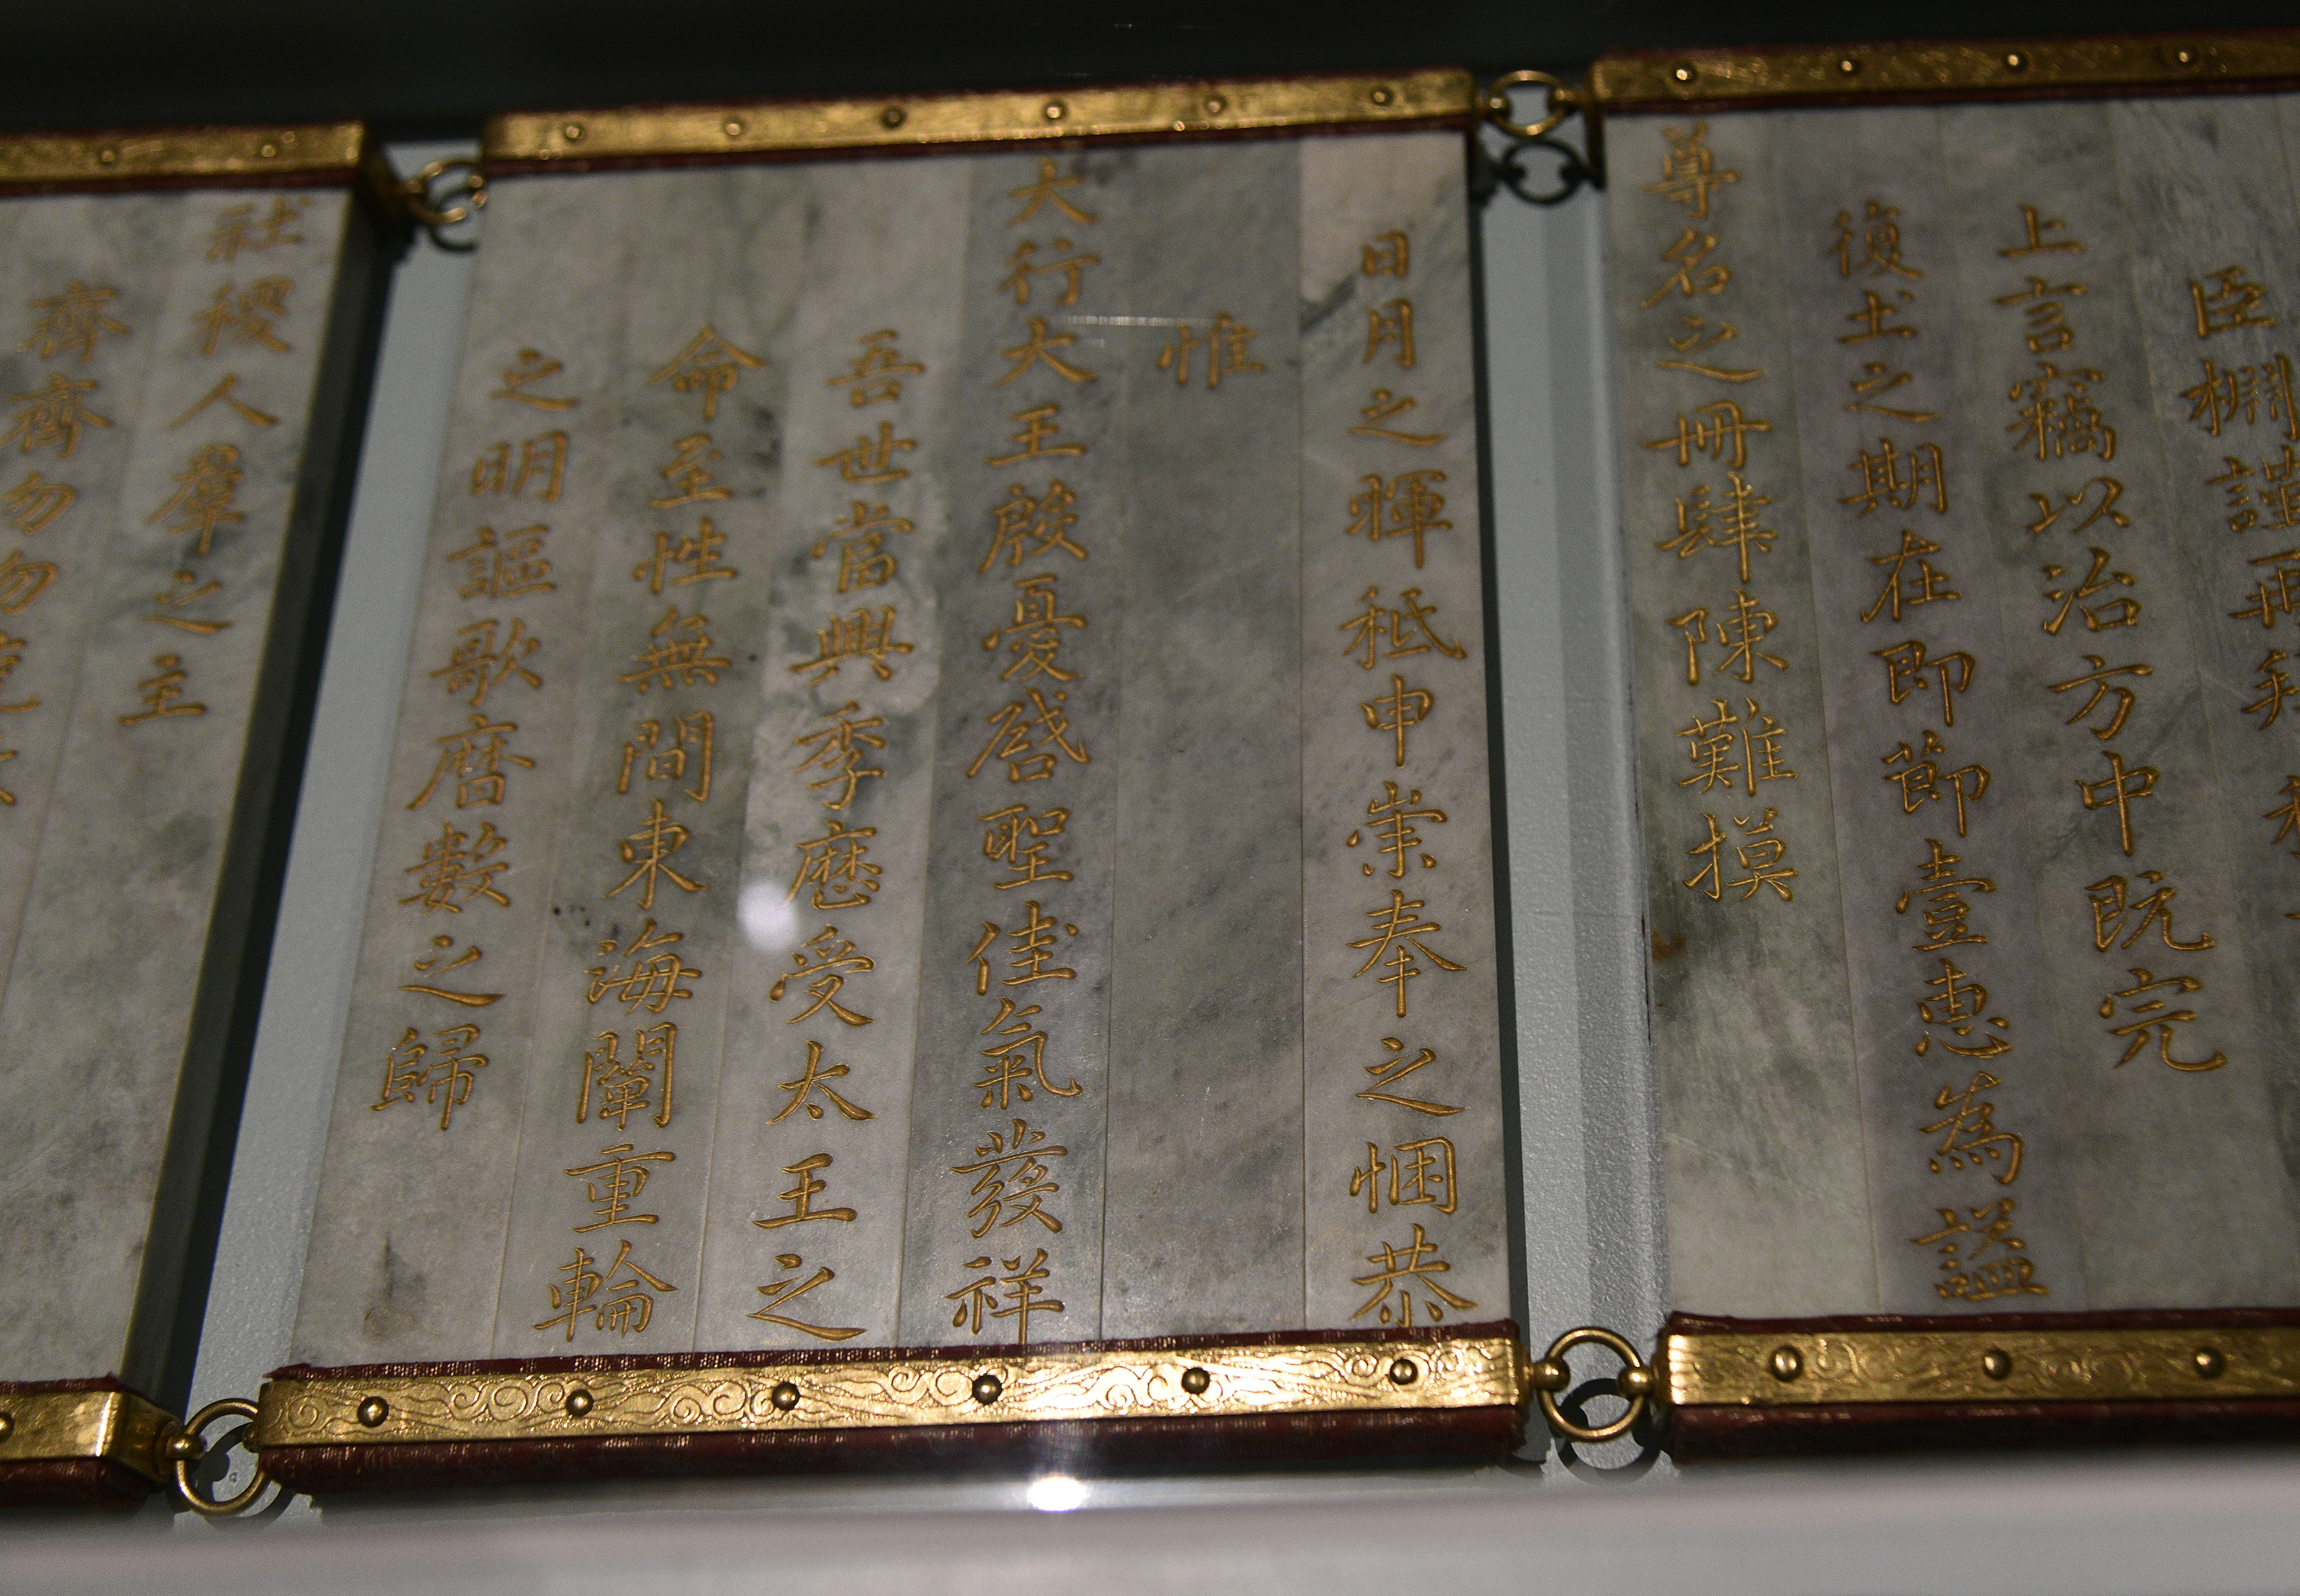 臣棩謹再拜
上言竊以治方中既完
復土之期在即節壹惠為諡
尊名之冊肆陳難摸
日月之暉秪申崇奉之悃恭
惟
大行大王殷憂啟聖佳氣發祥
吾世當興季歷受太王之
命至性無間東海闡重輪
之明謳歌曆數之歸
社稷人羣之主
齊齊勿勿